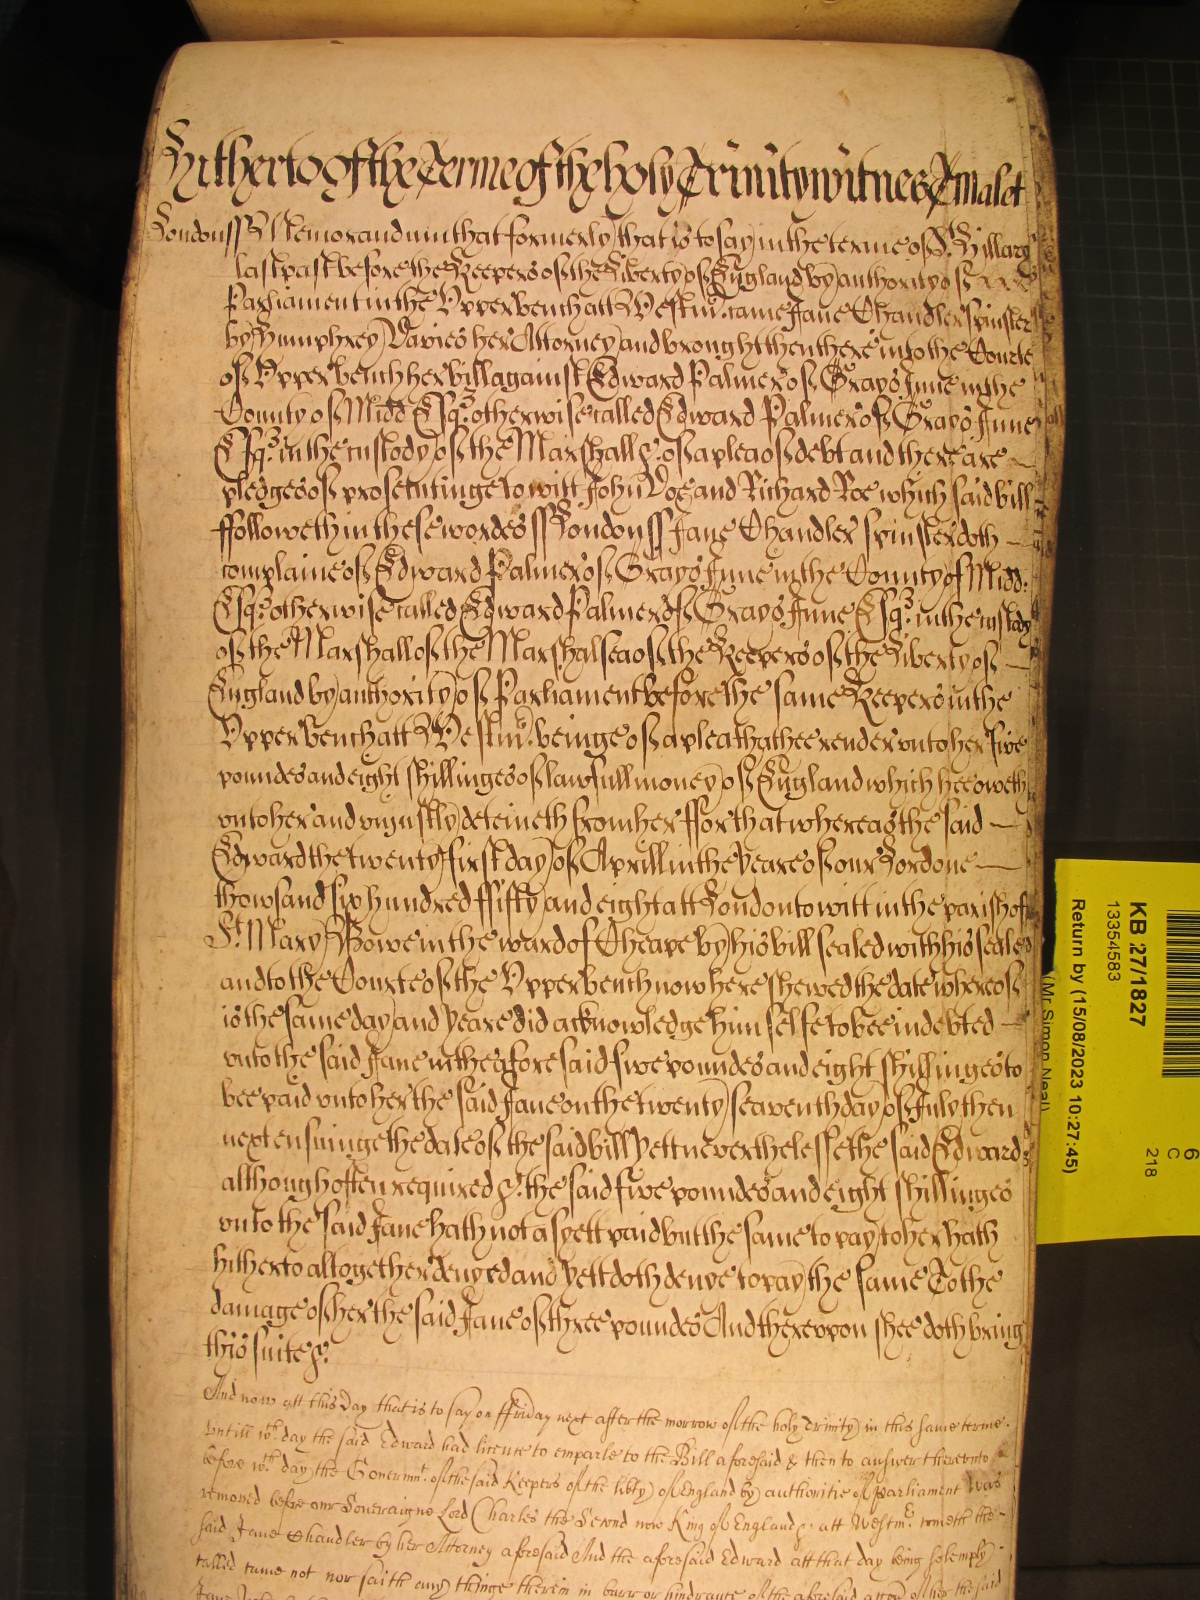 Hitherto of the Terme of the holy Trinity witnes T Malet
London ss Memorandum that formerly that is to say in the terme of St. Hillary
last past before the Keepers of the Liberty of England by authority of
Parliament in the Upper bench att Westm. came Jane Chandler spinster
by Humphrey Davies her Attorney and brought then there into the Courte
of Upper bench her bill against Edward Palmer of Grays Inne in the
County of Midd Esqr. otherwise called Edward Palmer of Grays Inne
Esqr. in the custody of the Marshall &c. of a plea of debt and there are
pledges of prosecutinge to witt John Doe and Richard Roe which said bill
ffolloweth in these wordes ss London ss Jane Chandler spinster doth
complaine of Edward Palmer of Grays Inne in the County of Midd:
Esqr. otherwise called Edward Palmer of Grays Inne Esqr. in the custody
of the Marshall of the Marshalsea of the Keepers of the Liberty of
England by authority of Parliament before the same Keepers in the
Upper bench att Westm. beinge of a plea that hee render unto her five
poundes and eight shillinges of lawfull money of England which hee oweth
unto her and uniustly deteineth from her ffor that whereas the said
Edward the twenty first day of Aprill in the yeare of our Lord one
thowsand six hundred ffifty and eight att London to witt in the parish of
St. Mary Bowe in the ward of Cheape by his bill sealed with his seale
and to the Courte of the Upper bench now here shewed the date whereof
is the same day and yeare did acknowledge himselfe to bee indebted
unto the said Jane in the aforesaid five poundes and eight shillinges to
bee paid unto her the said Jane on the twenty seaventh day of July then
next ensuinge the date of the said bill Yett neverthelesse the said Edward
although often required &c. the said five poundes and eight shillinges
unto the said Jane hath not as yett paid but the same to pay to her hath
hitherto altogether denyed and yett doth denye to pay the same To the
damage of her the said Jane of three poundes And thereuppon shee doth bring
this suite &c.
And now att this Day that is to say on ffriday next after the morrow of the holy Trinity in this same terme
untill wch. day the said Edward had licence to emparle to the Bill aforesaid & then to answer thereunto
before wch. day the Governmt. of the said Keepers of the libty of England by authoritie of parliament was
removed before our Soveraigne Lord Charles the Second now King of England &c. att Westmr. cometh the
said Jane Chandler by her Attorney aforesaid And the aforesaid Edward att that day being solemply
called came not nor saith any thinge therein in barr or hindrance of the aforesaid accon of her the said
KB 27/1827
13354583
Return by (15/08/2023 10:27:45)
(Mr Simon Neal)
6
C
218